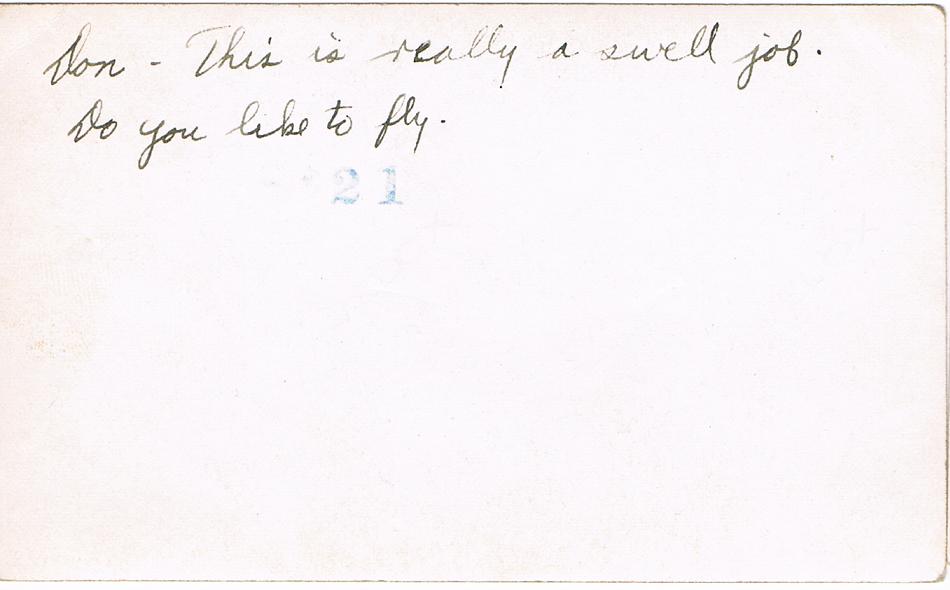 Don - This is really a swell job.
Do you like to fly.
21